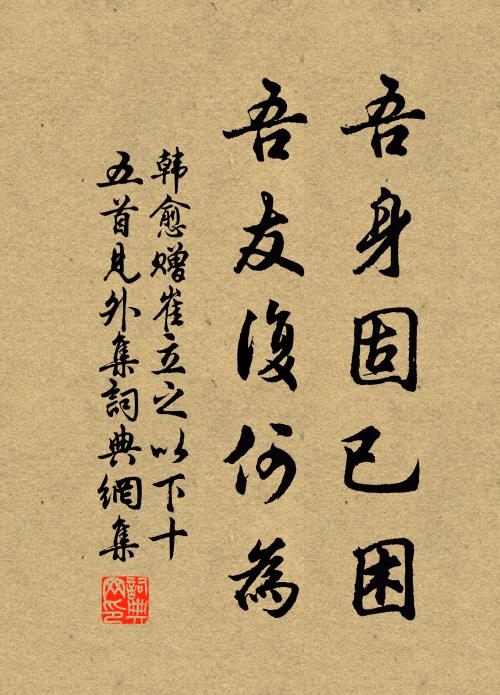 吾身固已困
吾友復何為
韩愈赠崔立之以下十
五首見外集詞典網集
詞典网印